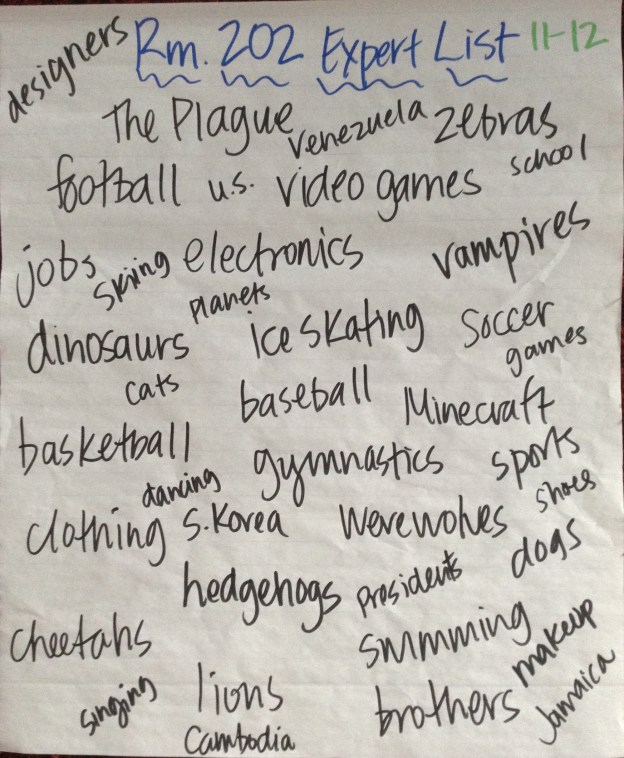 designers Rm. 202 Expert List 11-12
The Plague Venezuela zebras
football U.S. video games school
jobs skiing electronics vampires
planets
dinosaurs ice skating Soccer
games
cats baseball Minecraft
basketball gymnastics sports
dancing shoes
clothing S. Korea Werewolves dogs
hedgehogs presidents
cheetahs swimming makeup
singing lions brothers Jamaica
Cambodia